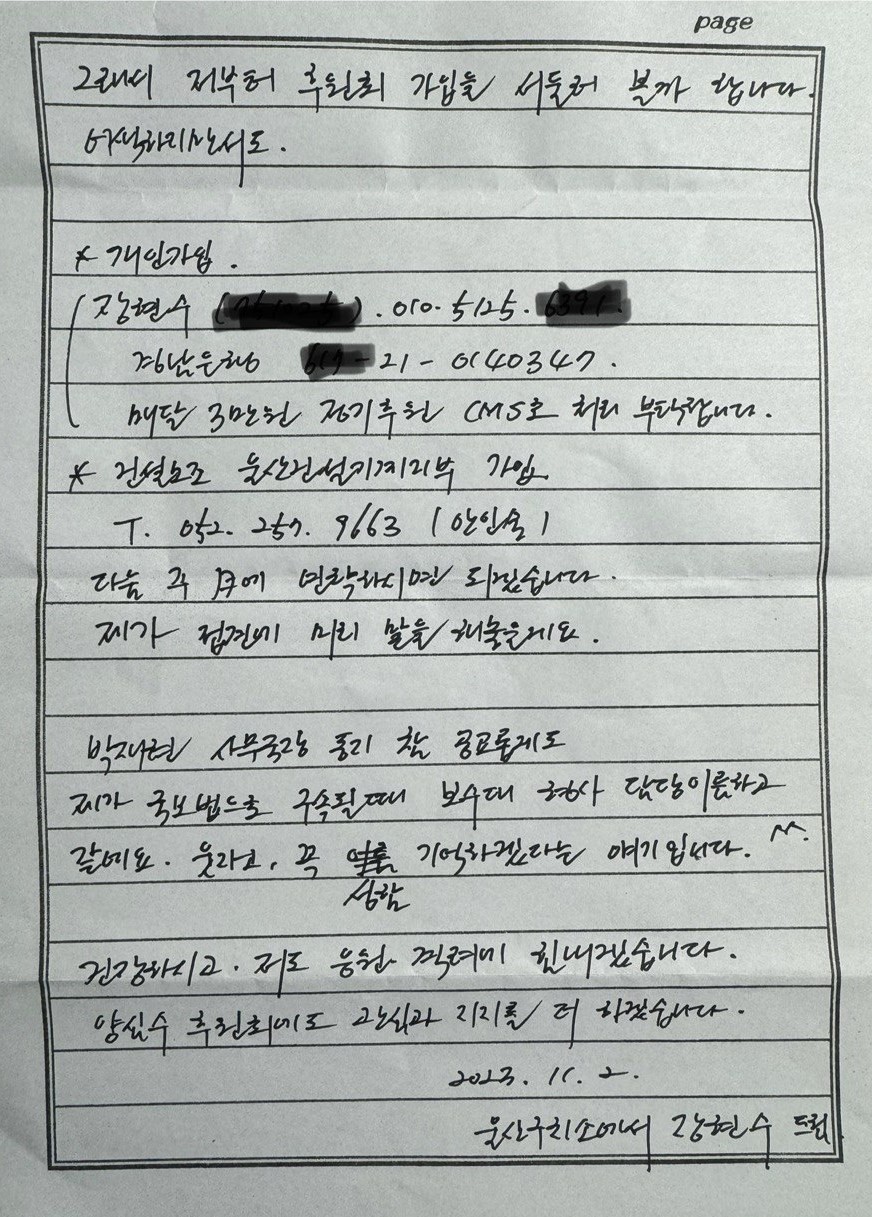 page
그래서 저부터 후원회 가입을 서둘러 볼까 합니다.
어색하지만서도.
* 개인가입.
장현수 ( ) . 010. 5125.
경남은행 - 21 - 0140347.
매달 3만원 정기후원 CMS로 처리 부탁합니다.
* 건설노조 울산건설기계지부 가입
T. 052. 257. 9663 (안인술)
다음 주 月에 연락하시면 되겠습니다.
제가 접견에 미리 말을 해놓을게요.
박재현 사무국장 동지 참 공교롭게도
제가 국보법으로 구속될때 보수대 형사 담당이름하고
같네요. 웃라고, 꼭 기억하겠다는 얘기입니다. ^^.
성함
건강하시고. 저도 응원 격려에 힘내겠습니다.
양심수 후원회에도 관심과 지지를 더 하겠습니다.
2023. 11. 2.
울산구치소에서 장현수 드림